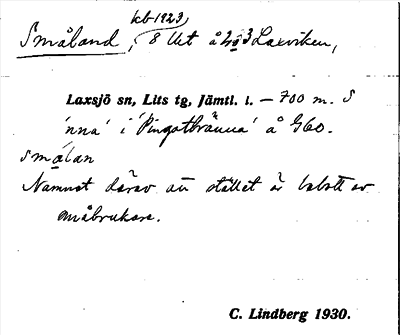 kb 1923,
Småland, 8 Utt å 2o3 Laxviken,
Laxsjö sn, Lits tg, Jämtl. l. — 700 m. S
'nna' i 'Pingstbränna' å G60.
småḷan
Namnet därav att stället är bebott av
småbrukare.
C. Lindberg 1930.